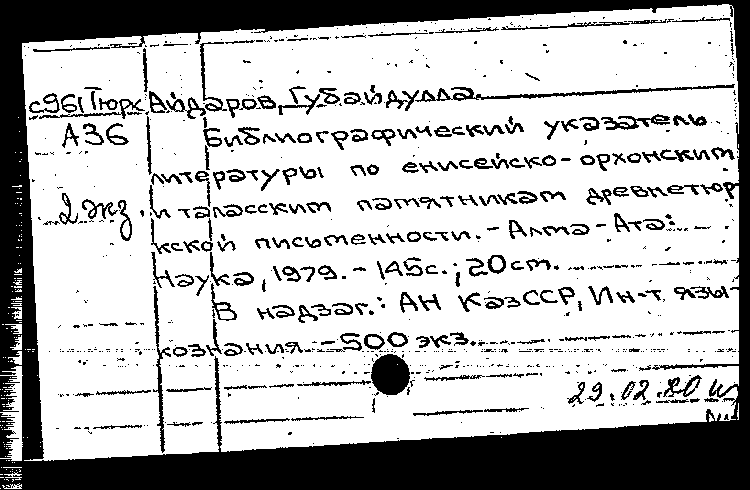 с961Тюрк Айдаров, Губайдулла.
А36 Библиографический указатель
литературы по енисейско-орхонским
2 экз. и таласским памятникам древнетюр
кской письменности. - Алма-Ата:
Наука, 1979. - 145с.; 20см.
В надзаг.: АН КазССР, Ин-т язы-
кознания. - 500 экз.
29.02.80